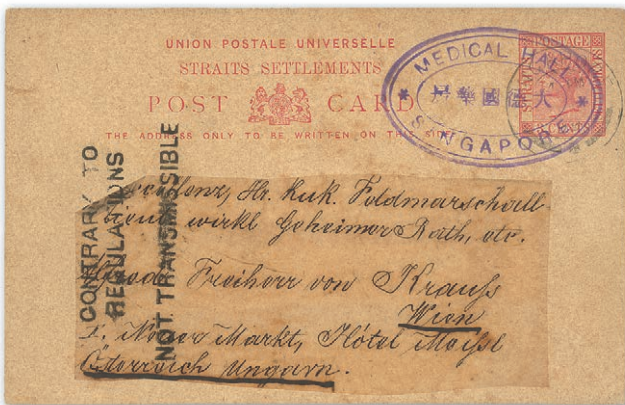 UNION POSTALE UNIVERSELLE
STRAITS SETTLEMENTS
POST CARD
THE ADDRESS ONLY TO BE WRITTEN ON THIS SIDE
* MEDICAL HALL *
大德國藥
SINGAPORE
STRAITS POSTAGE
CONTRARY TO
REGULATIONS
NOT TRANSMISSIBLE
Excellenz, Hr. kuk. Feldmarschall-
wirkl Geheimer Rath, etc.
Freiherr von Krauß
Wien
I. Neuer Markt, Hôtel Meißl
Österreich Ungarn.